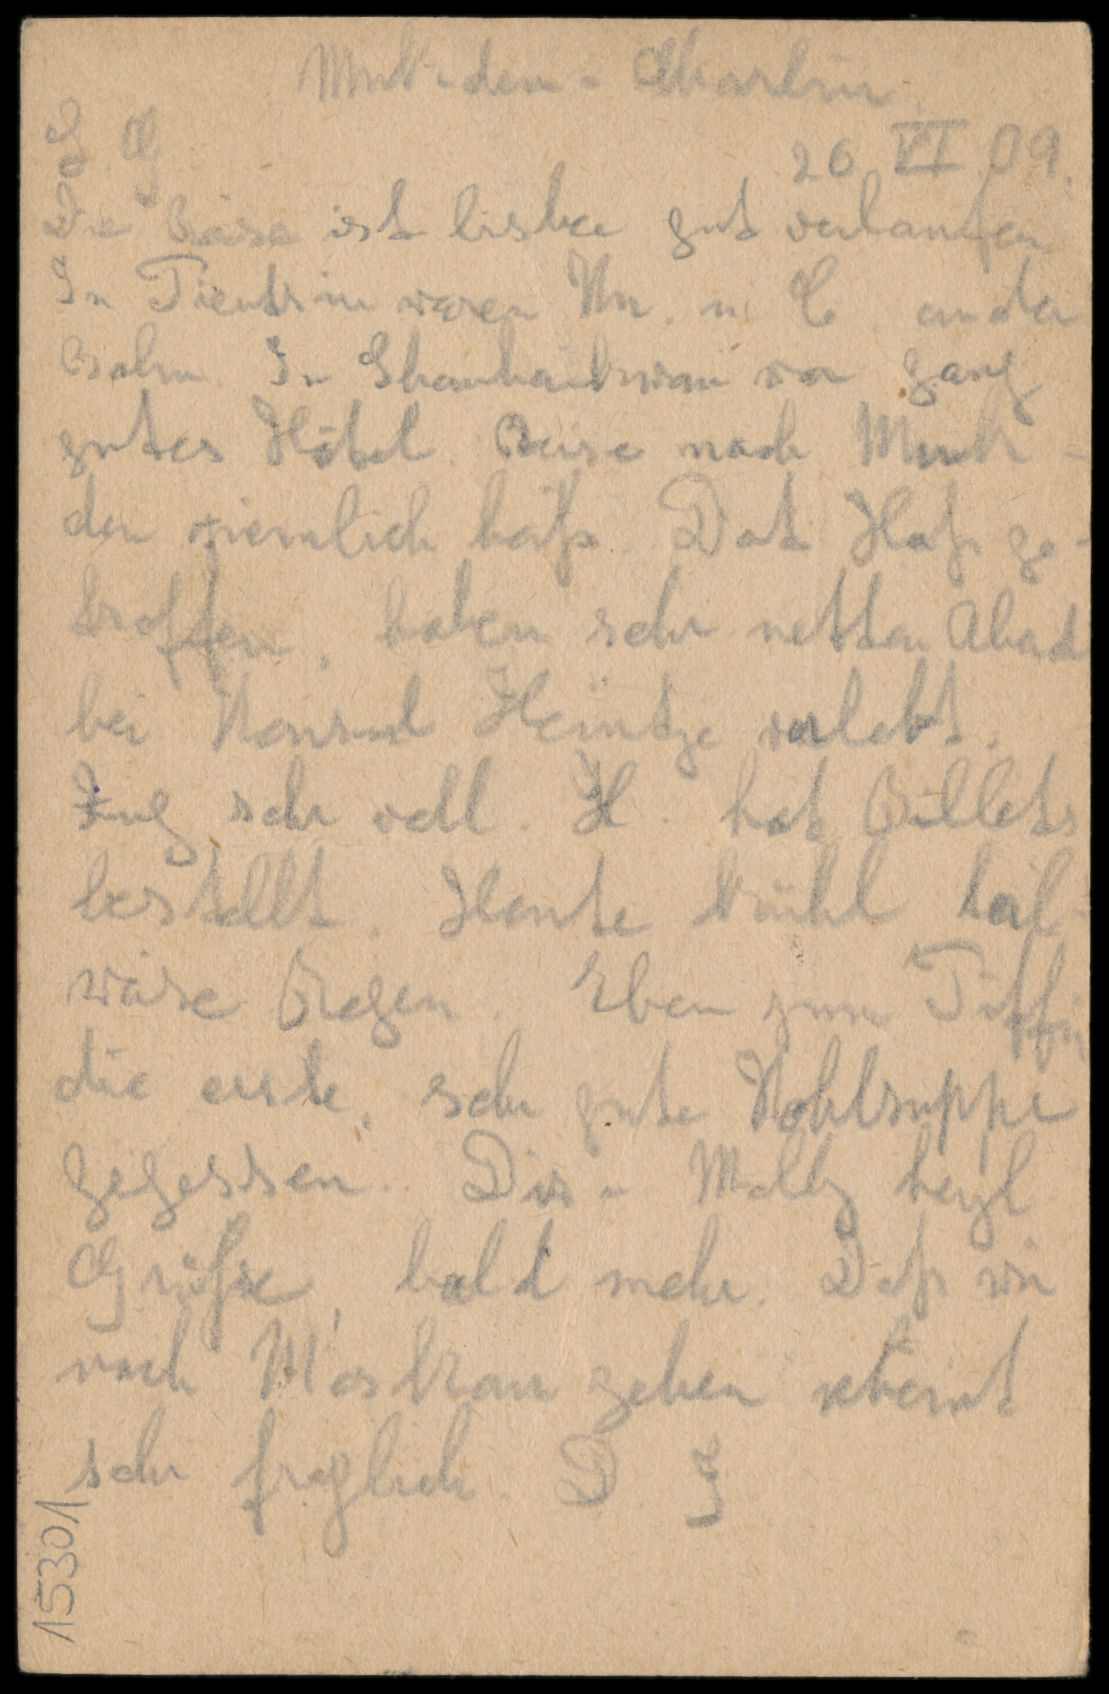 Muk-den - Charbin.
26 VI 09.
L. G.
Die Reise ist bisher gut verlaufen
In Tientsin waren Kn. u. C. an der
Bahn. In Shanhaikwan war ganz
gutes Hôtel. Reise nach Muk-
den ziemlich heiß. Dat Haß ge-
troffen, haben sehr netten Abend
bei Konsul Heintge verlebt.
Zug sehr voll. H. hat Billets
bestellt. Heute kühl teil-
weise Regen. Eben zum Tiffin
die erste, sehr gute Kohlsuppe
gegessen. Dir u. Molly herzl
Grüße, bald mehr. Daß wir
nach Moskau gehen scheint
sehr fraglich. D. J
15301